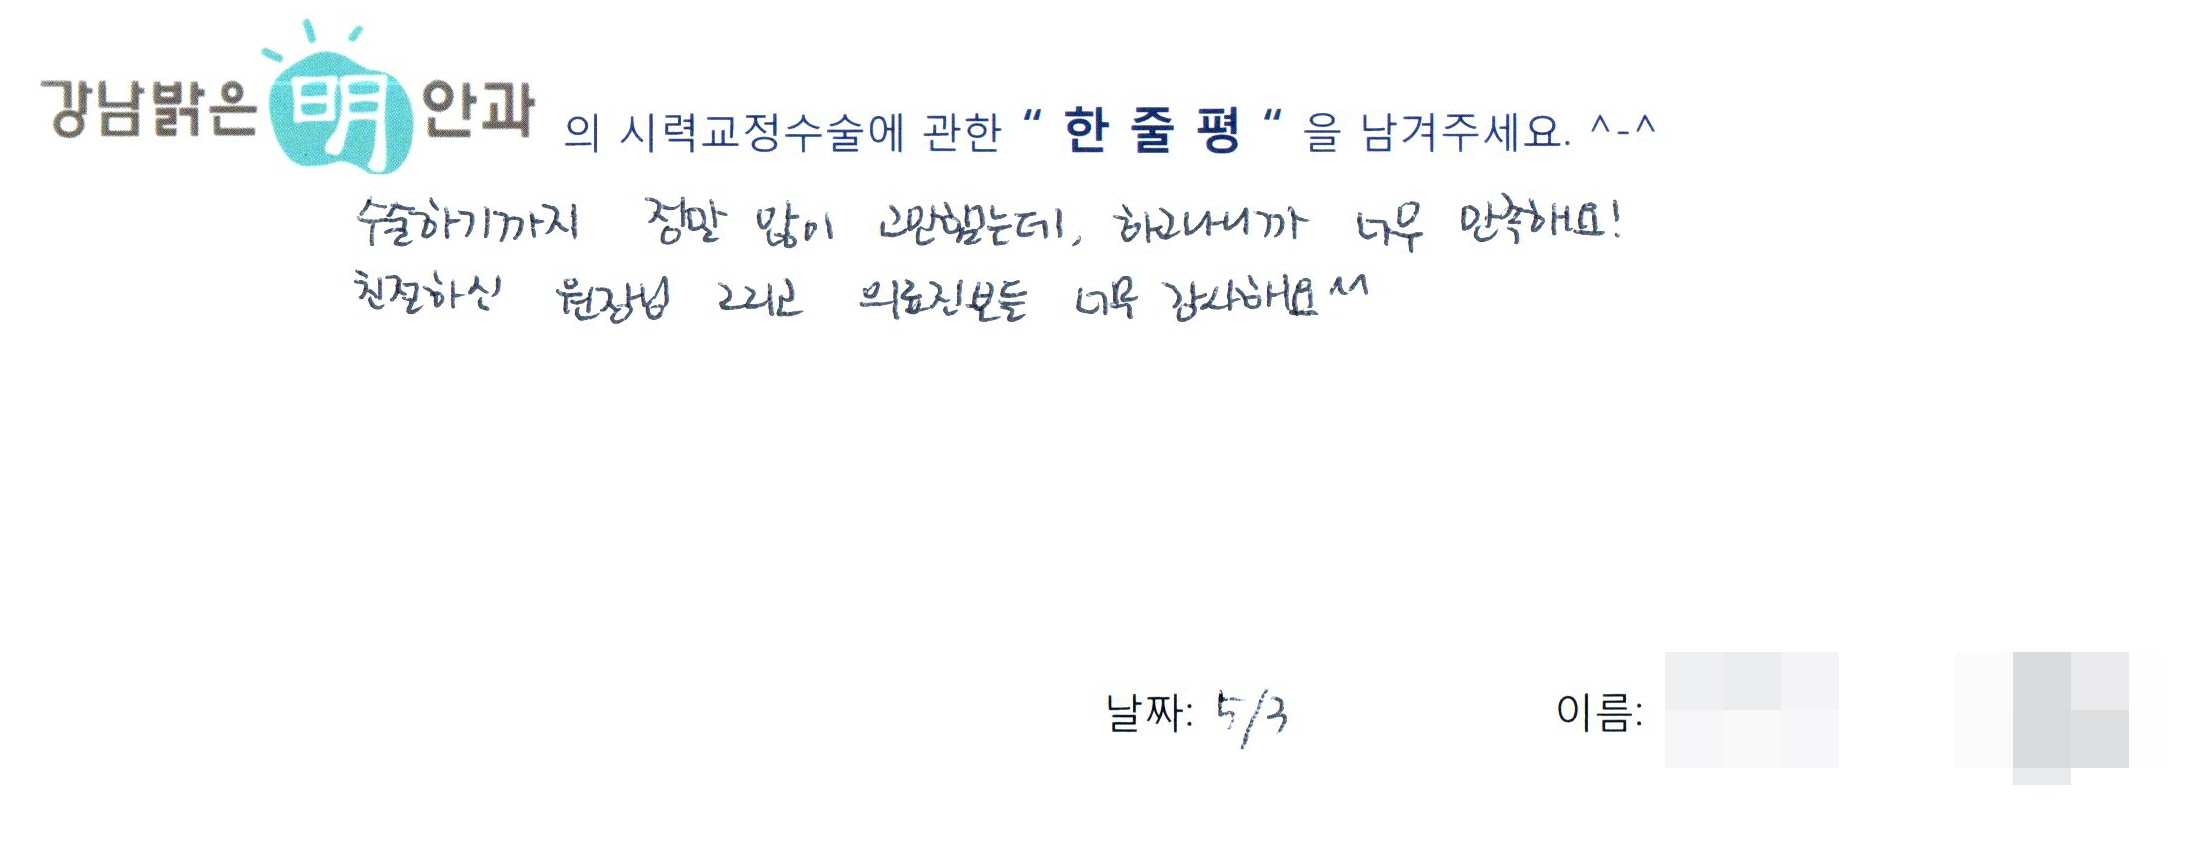 강남밝은明안과 의 시력교정수술에 관한 “ 한 줄 평 “ 을 남겨주세요. ^-^
수술하기까지 정말 많이 고민했는데, 하고나니까 너무 만족해요!
친절하신 원장님 그리고 의료진분들 너무 감사해요^^
날짜: 5/3 이름: